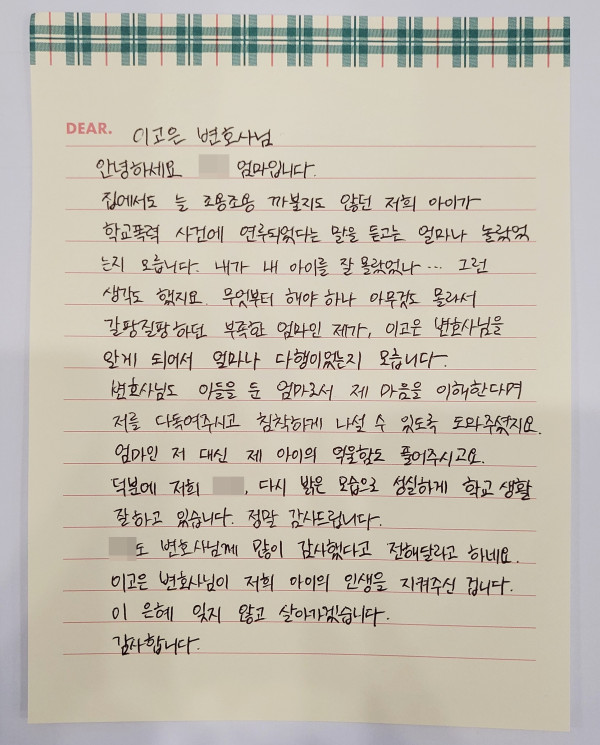 DEAR. 이고은 변호사님
안녕하세요 엄마입니다.
집에서도 늘 조용조용 까불지도 않던 저희 아이가
학교폭력 사건에 연루되었다는 말을 듣고는 얼마나 놀랐었
는지 모릅니다. 내가 내 아이를 잘 몰랐었나... 그런
생각도 했지요. 무엇부터 해야 하나 아무것도 몰라서
갈팡질팡하던 부족한 엄마인 제가, 이고은 변호사님을
알게 되어서 얼마나 다행이었는지 모릅니다.
변호사님도 아들을 둔 엄마로서 제 마음을 이해한다며
저를 다독여주시고 침착하게 나설 수 있도록 도와주셨지요.
엄마인 저 대신 제 아이의 억울함도 풀어주시고요.
덕분에 저희 , 다시 밝은 모습으로 성실하게 학교 생활
잘하고 있습니다. 정말 감사드립니다.
도 변호사님께 많이 감사했다고 전해달라고 하네요.
이고은 변호사님이 저희 아이의 인생을 지켜주신 겁니다.
이 은혜 잊지 않고 살아가겠습니다.
감사합니다.